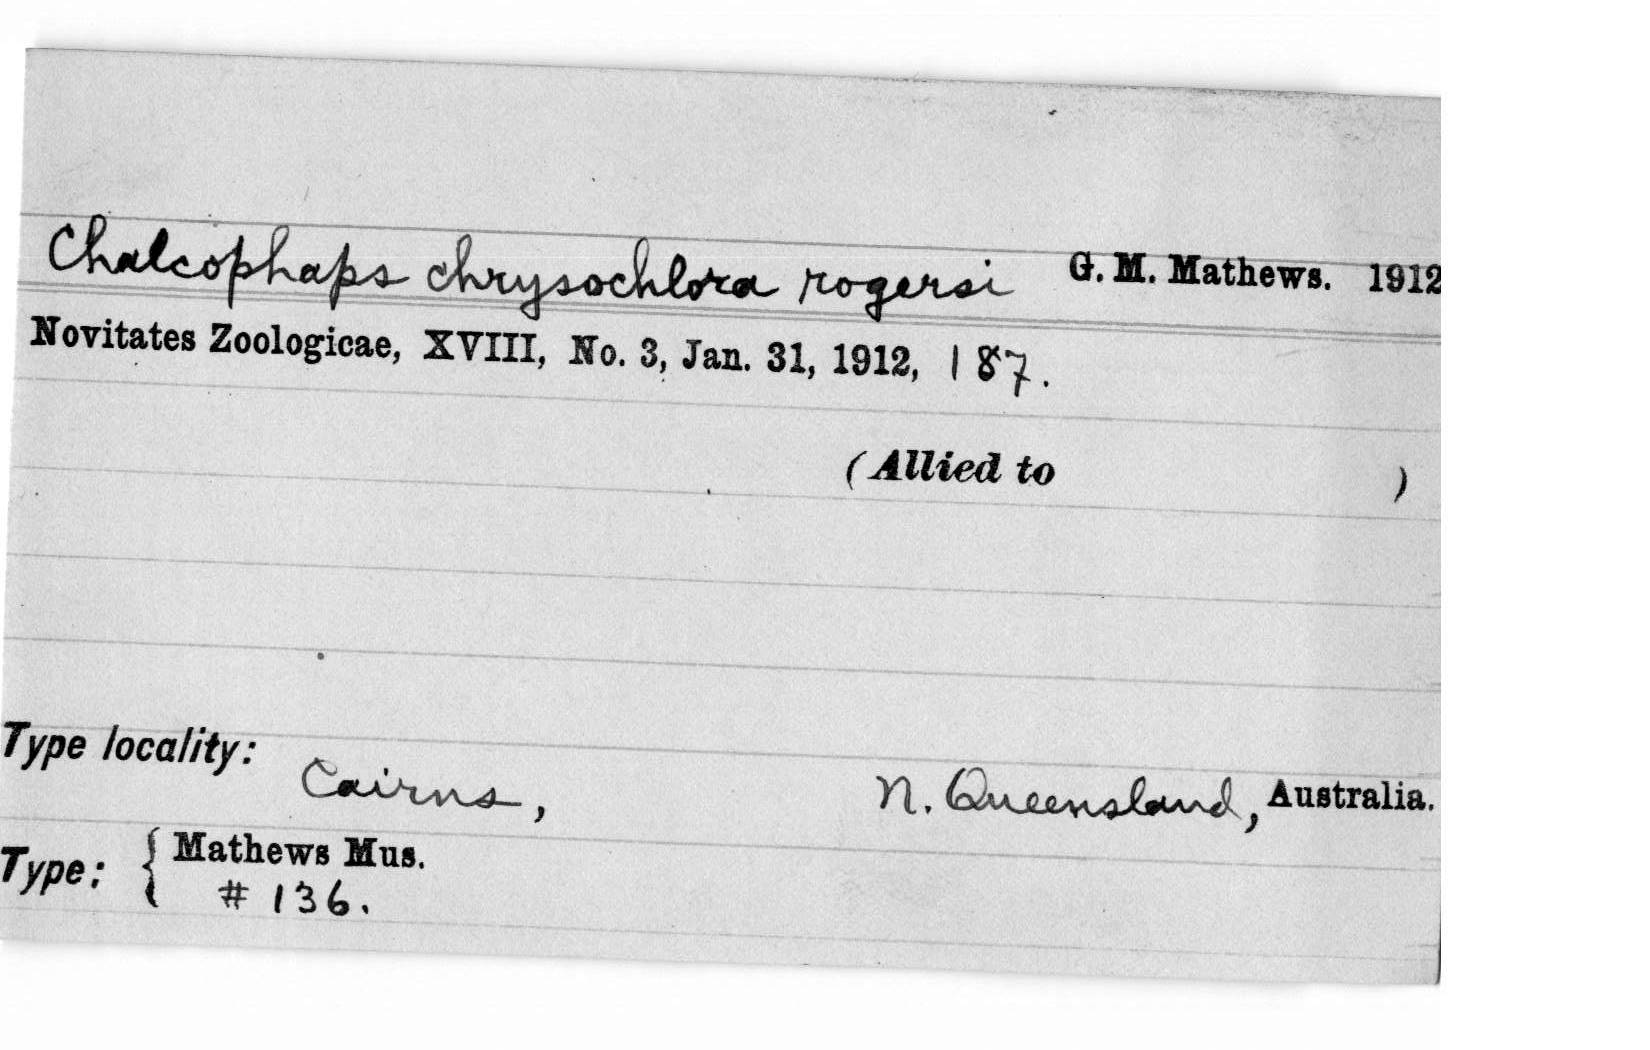 Chalcophaps chrysochlora rogersi G. M. Mathews. 1912
Novitates Zoologicae, XVIII, No. 3, Jan. 31, 1912, 187.
(Allied to )
Type locality:
Cairns, N. Queensland, Australia.
Type: { Mathews Mus.
# 136.